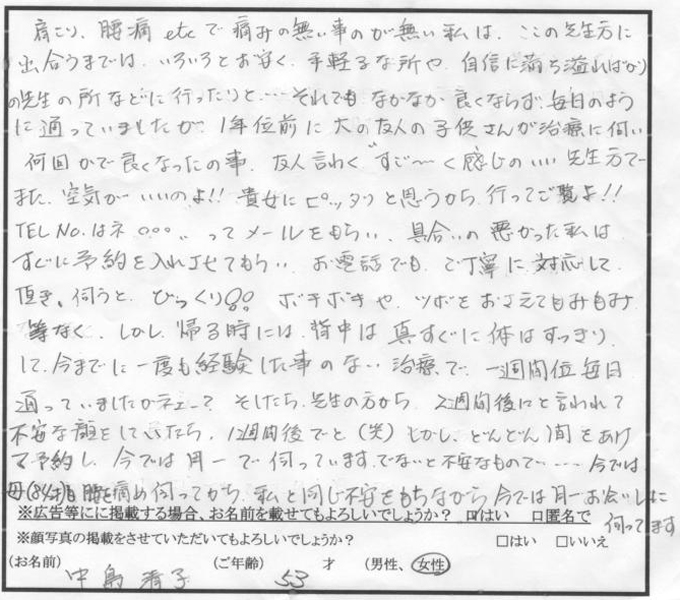 肩こり、腰痛 etcで痛みの無い事のが無い私は、ここの先生方に
出合うまでは、いろいろとお安く、手軽るな所や、自信に満ち溢ればかり
の先生の所などに行ったりと…それでもなかなか良くならず、毎日のよう
に通っていましたが、1年位前に大の友人の子供さんが治療に伺い
何回かで良くなったの事、友人言わく"すご〜く感じのいい先生方で
また、空気がいいのよ!!貴女にピッタリと思うから、行ってご覧よ!!
TEL No.はネ○○○〟ってメールをもらい、具合いの悪かった私は
すぐに予約を入れさせてもらい、お電話でも、ご丁寧に対応して
頂き、伺うと、びっくり!! ボキボキや、ツボをおさえてもみもみ
等なく、しかし、帰る時には、背中は真すぐに体はすっきり
して、今までに一度も経験した事のない治療で、一週間位毎日
通っていましたかネェ〜? そしたら、先生の方から、2週間後にと言われて
不安な顔をしていたら、1週間後でと(笑)しかし、どんどん間をあけ
て予約し、今では月一で伺っています。でないと不安なもので……今では
母(84才)も腰を痛め伺ってから、私と同じ不安をもちながら今では月一お会いしに
伺ってます
※広告等にに掲載する場合、お名前を載せてもよろしいでしょうか? ☑はい □匿名で
※顔写真の掲載をさせていただいてもよろしいでしょうか? □はい □いいえ
(お名前) 中島 清子 (ご年齢) 53 才 (男性、女性)